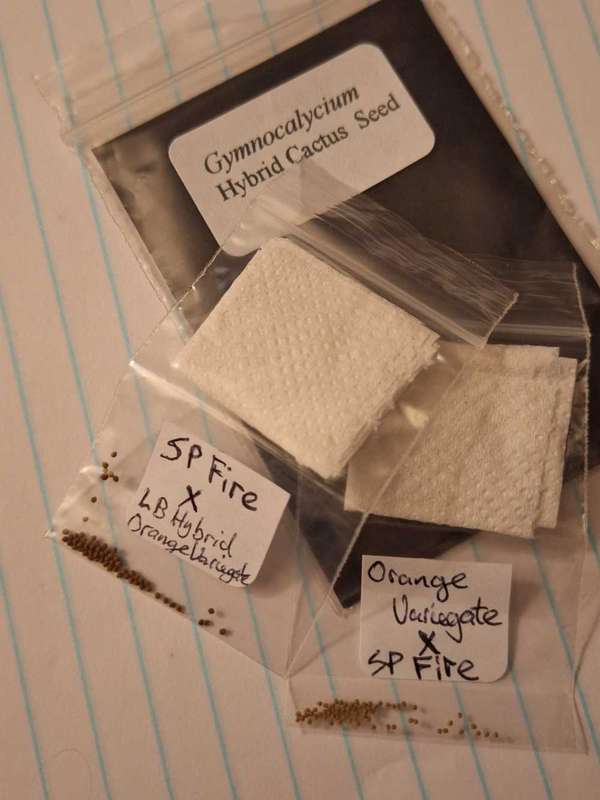 Gymnocalycium
Hybrid Cactus Seed
SP Fire
X
LB Hybrid
Orange Variegate
Orange
Variegate
X
SP Fire